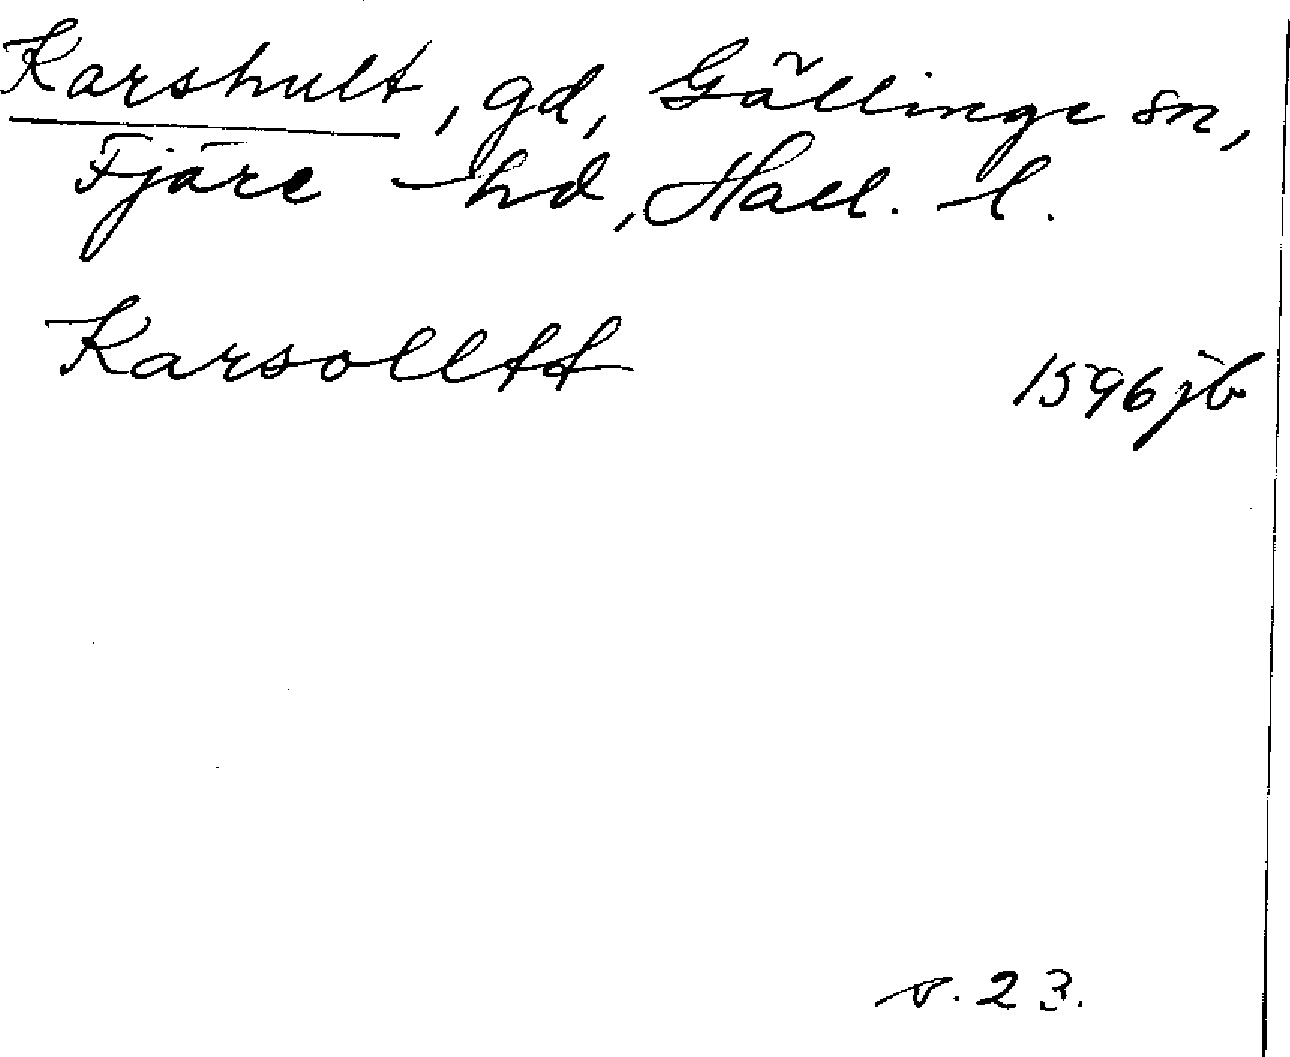 Karshult, gd, Gällinge sn,
Fjäre hd, Hall. l.
Karsolltt 1596 jb
s. 23.